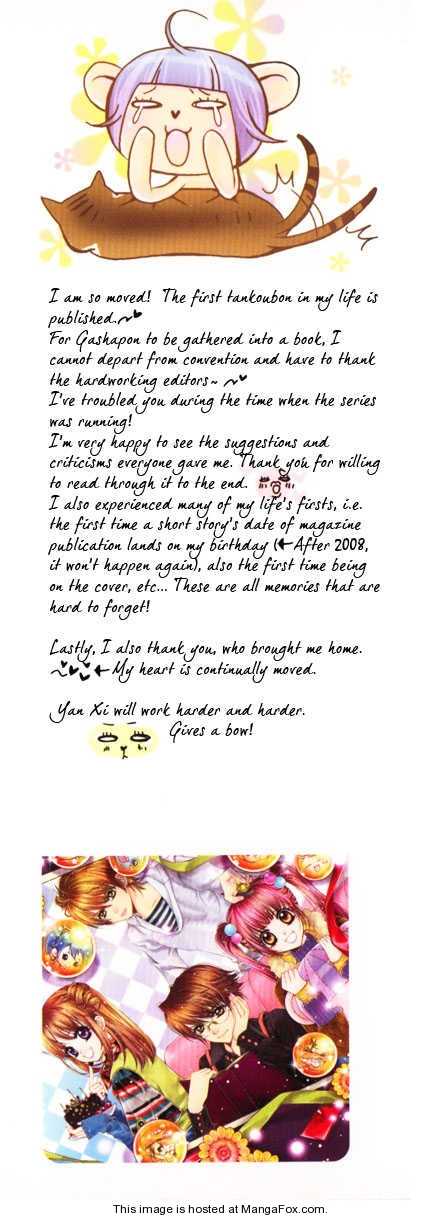 I am so moved! The first tankoubon in my life is
published.~♥
For Gashapon to be gathered into a book, I
cannot depart from convention and have to thank
the hardworking editors~ ~♥
I've troubled you during the time when the series
was running!
I'm very happy to see the suggestions and
criticisms everyone gave me. Thank you for willing
to read through it to the end.
I also experienced many of my life's firsts, i.e.
the first time a short story's date of magazine
publication lands on my birthday (←After 2008,
it won't happen again), also the first time being
on the cover, etc... These are all memories that are
hard to forget!
Lastly, I also thank you, who brought me home.
~♥♥♥←My heart is continually moved.
Yan Xi will work harder and harder.
Gives a bow!
This image is hosted at MangaFox.com.